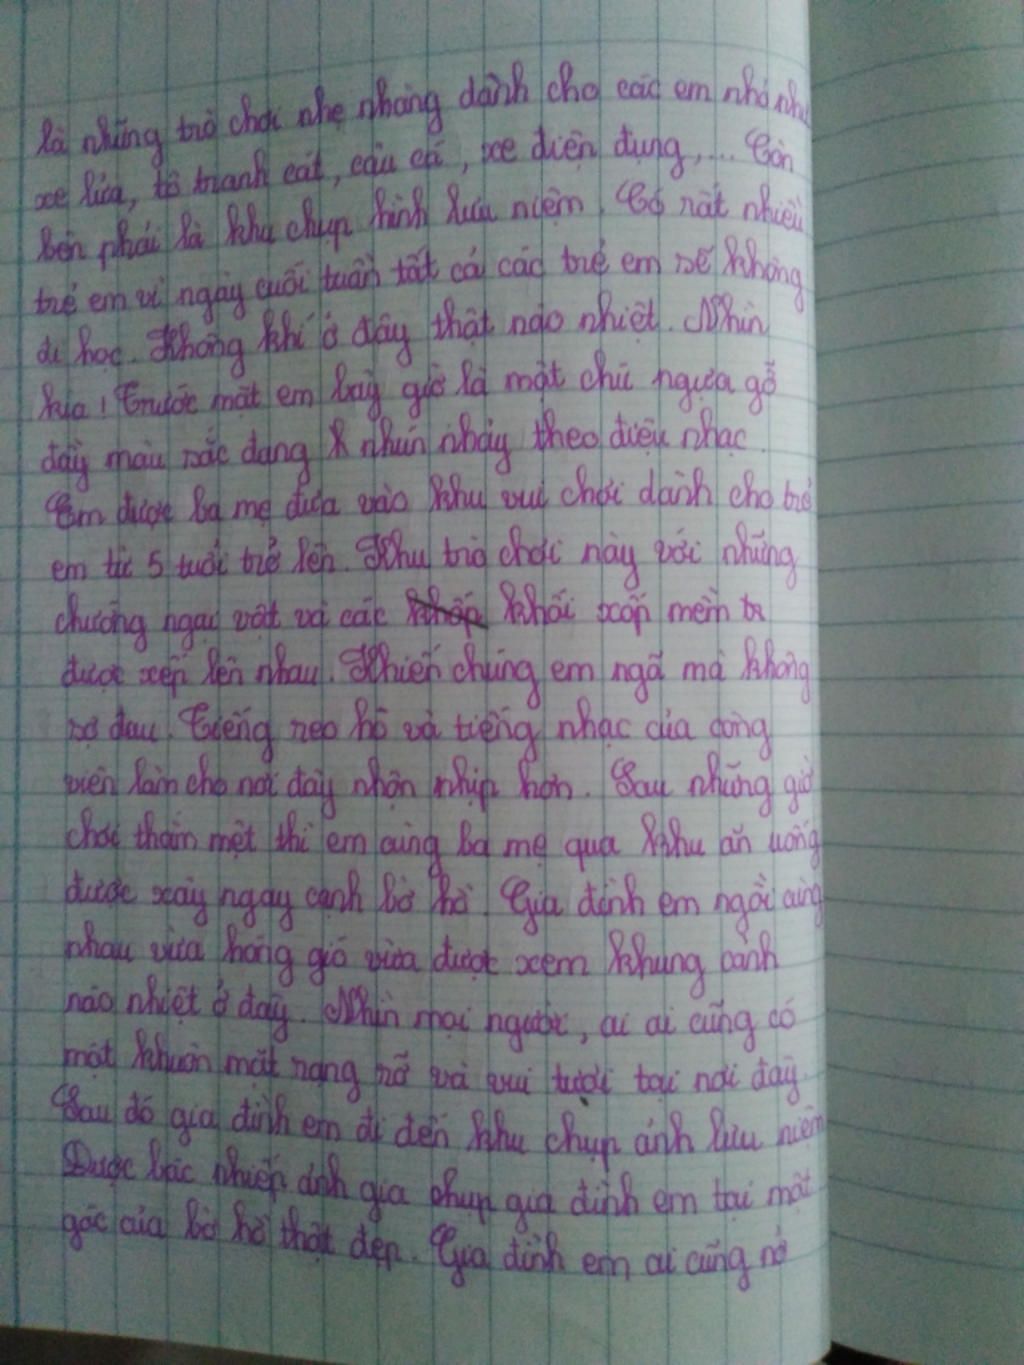 là những trò chơi nhẹ nhàng dành cho các em nhỏ như
xe lửa, tô tranh cát, câu cá, xe điện đụng,... Còn
bên phải là khu chụp hình lưu niệm. Có rất nhiều
trẻ em vì ngày cuối tuần tất cả các trẻ em sẽ không
đi học. Không khí ở đây thật náo nhiệt. Nhìn
kìa! Trước mặt em bây giờ là một chú ngựa gỗ
đầy màu sắc đang nhún nhảy theo điệu nhạc.
Em được ba mẹ đưa vào khu vui chơi dành cho trẻ
em từ 5 tuổi trở lên. Khu trò chơi này với những
chướng ngại vật và các khối xốp mềm
được xếp lên nhau. Khiến chúng em ngã mà không
sợ đau. Tiếng reo hò và tiếng nhạc của công
viên làm cho nơi đây nhộn nhịp hơn. Sau những giờ
chơi thấm mệt thì em cùng ba mẹ qua khu ăn uống
được xây ngay cạnh bờ hồ. Gia đình em ngồi cùng
nhau vừa hóng gió vừa được xem khung cảnh
náo nhiệt ở đây. Nhìn mọi người, ai ai cũng có
một khuôn mặt rạng rỡ và vui tươi tại nơi đây.
Sau đó gia đình em đi đến khu chụp ảnh lưu niệm
Được bác nhiếp ảnh gia chụp gia đình em tại một
góc của bờ hồ thật đẹp. Gia đình em ai cũng nở